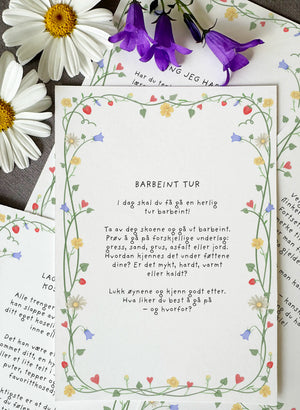 BARBEINT TUR
I dag skal du få gå en herlig
tur barbeint!
Ta av deg skoene og gå ut barbeint.
Prøv å gå på forskjellige underlag:
gress, sand, grus, asfalt eller jord.
Hvordan kjennes det under føttene
dine? Er det mykt, hardt, varmt
eller kaldt?
Lukk øynene og kjenn godt etter.
Hva liker du best å gå på
– og hvorfor?
NG JEG HAR
Har du ten
Alle trenger
kan slappe av
ditt eget koseli
inne el
Det kan være et
ditt, en hy
eller et lite telt
puter, tepper og
favorittting